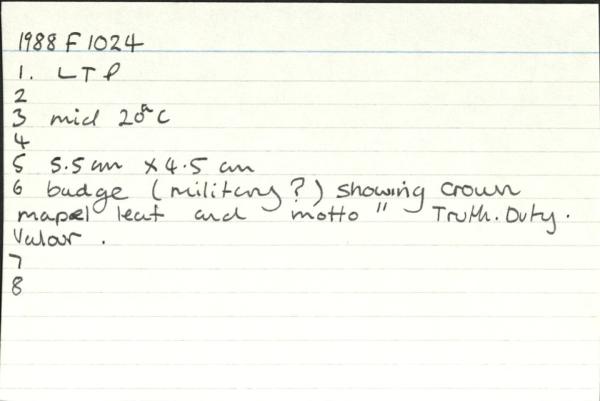 1988 F 1024
1. LTP
2
3 mid 20th C
4
5 5.5 cm x 4.5 cm
6 badge (military?) showing crown
mapel leaf and motto " Truth. Duty.
Valour.
7
8